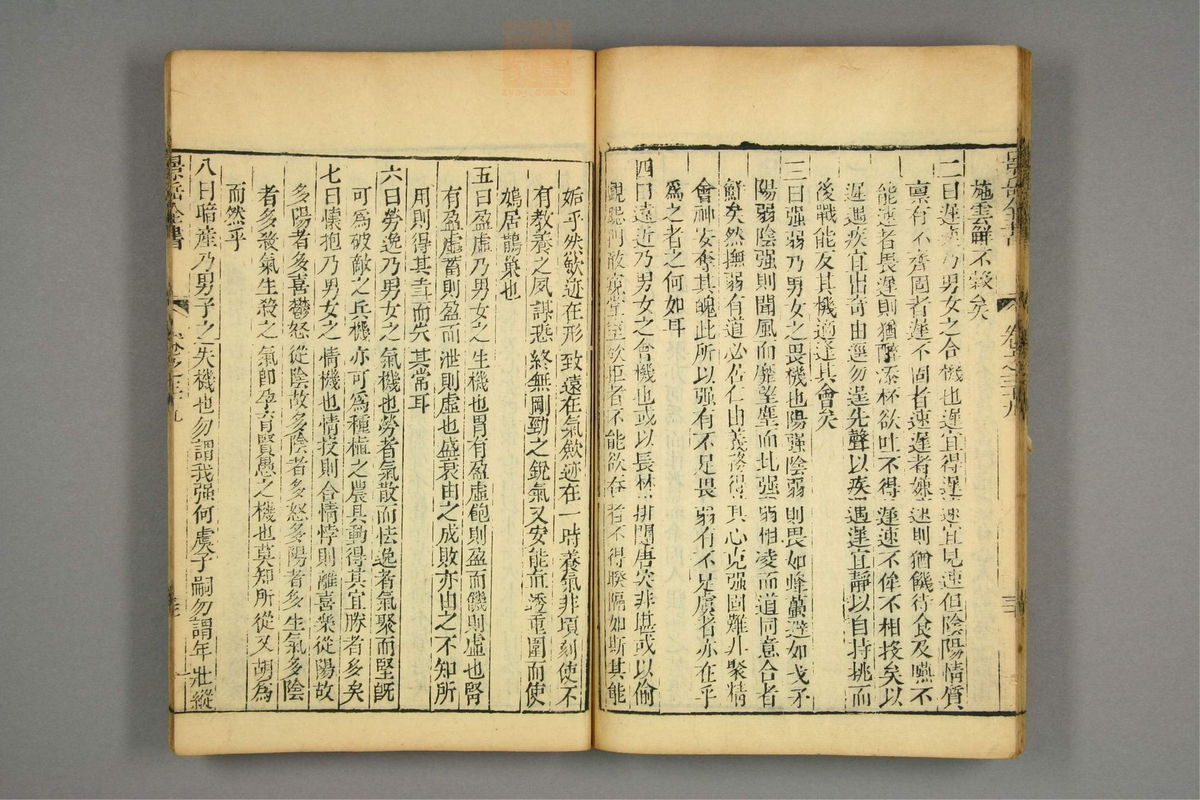 景岳全書 卷之三十九
施雲觧不穀矣
二曰遲速乃男女之合機也遲宜得遲速宜見速但陰陽情質
禀有不齊固者遲不固者速遲者嫌速則猶饑待食及嚥不
能速者畏遲則猶醉添杯欲吐不得遲速不侔不相投矣以
遲遇疾宜出奇由逕勿逞先聲以疾遇遲宜靜以自持挑而
後戰能反其機適逢其會矣
三曰强弱乃男女之畏機也陽强陰弱則畏如蜂蠆避如戈矛
陽弱陰强則聞風而靡望塵而北强弱相凌而道同意合者
鮮矣然撫弱有道必居仁由義務得其心克强固難非聚精
會神安奪其魄此所以强有不足畏弱有不足虞者亦在乎
爲之者之何如耳
四曰遠近乃男女之會機也或以長林排闥唐突非堪或以偷
覷跟門敞寬堂室欲拒者不能欲吞者不得暌隔如斯其能
姤乎然歛迹在形致遠在氣歛迹在一時養氣非頃刻使不
有教養之夙謀恐終無剛勁之銳氣又安能直透重圍而使
鳩居鵲巢也
五曰盈虚乃男女之生機也胃有盈虚飽則盈而饑則虚也腎
有盈虚蓄則盈而泄則虚也盛衰由之成敗亦由之不知所
用則得其幸而失其常耳
六曰勞逸乃男女之氣機也勞者氣散而怯逸者氣聚而堅旣
可爲破敵之兵機亦可爲種植之農具動得其宜勝者多矣
七曰懷抱乃男女之情機也情投則合情悖則離喜樂從陽故
多陽者多喜鬱怒從陰故多陰者多怒多陽者多生氣多陰
者多殺氣生殺之氣卽孕育賢愚之機也莫知所從又胡爲
而然乎
八曰暗產乃男子之失機也勿謂我强何慮子嗣勿謂年壯縱
景岳全書 卷之三十九